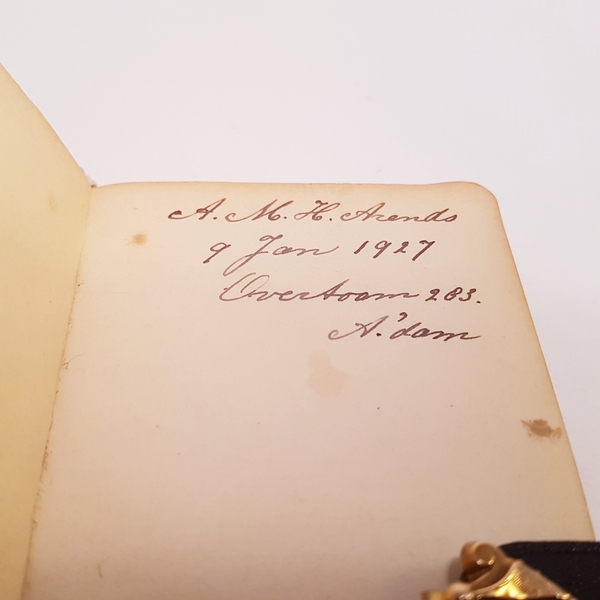 A. M. H. Arends
9 Jan 1927
Overtoom 283.
A.'dam